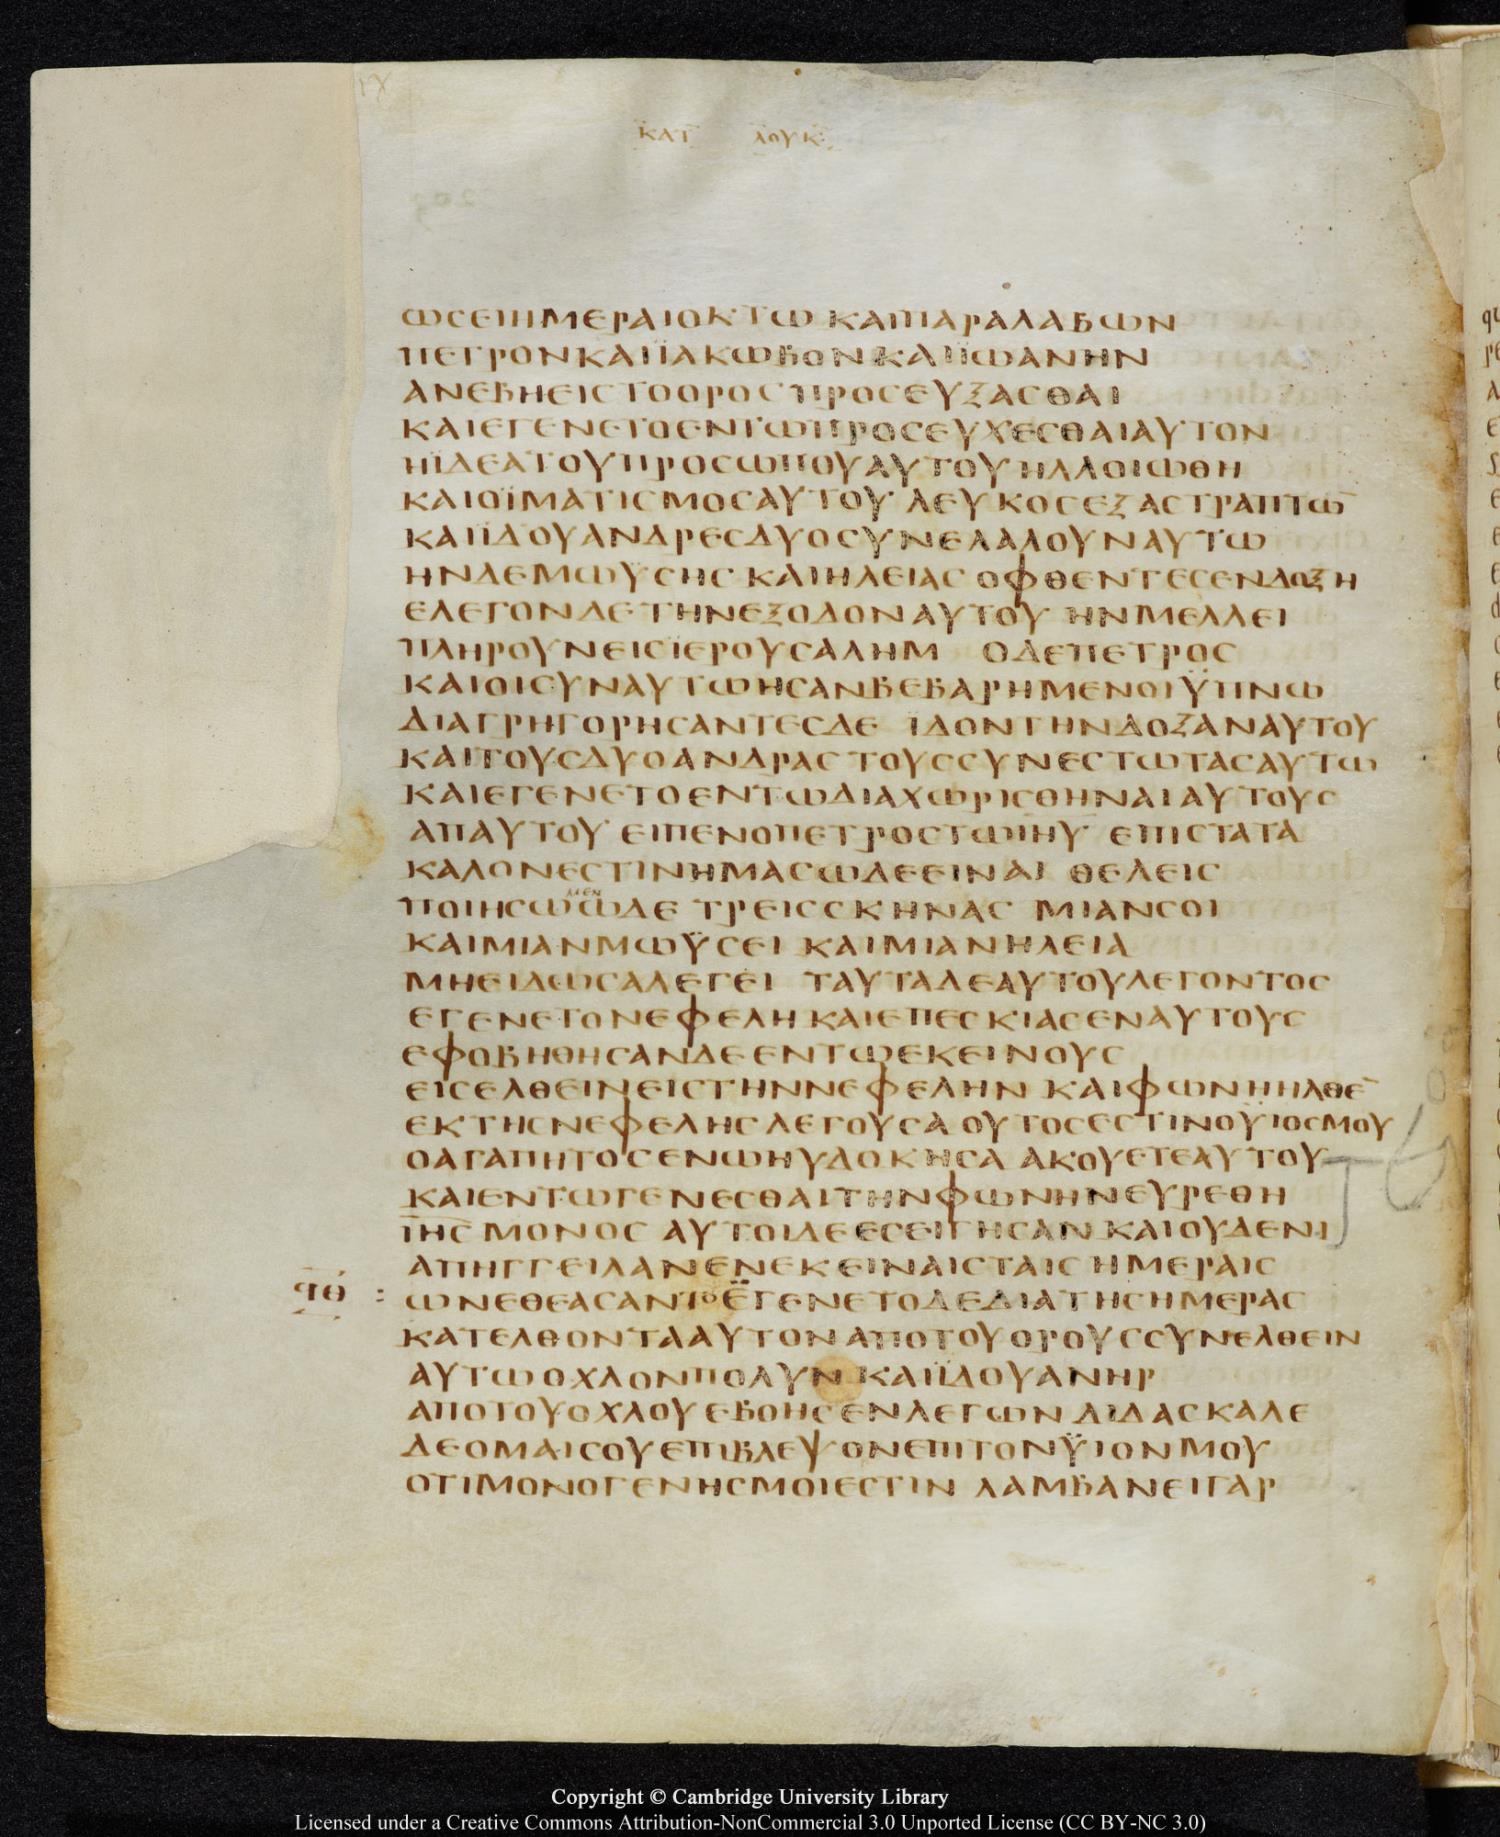 ΚΑΤ ΛΟΥΚ
ΩСЕΙΗΜЕΡΑΙΟΚΤΩ ΚΑΙΠΑΡΑΛΑΒΩΝ
ΠЕΤΡΟΝΚΑΙΪΑΚΩΒΟΝΚΑΙΪΩΑΝΗΝ
ΑΝЕΒΗЕΙСΤΟΟΡΟС ΠΡΟСЕΥΞΑСΘΑΙ
ΚΑΙЕΓЕΝЕΤΟЕΝΤΩΠΡΟСЕΥΧЕСΘΑΙΑΥΤΟΝ
ΗΪΔЕΑΤΟΥΠΡΟСΩΠΟΥΑΥΤΟΥ ΗΛΛΟΙΩΘΗ
ΚΑΙΟΪΜΑΤΙСΜΟСΑΥΤΟΥ ΛЕΥΚΟСЕΞΑСΤΡΑΠΤΩ̅
ΚΑΙΪΔΟΥΑΝΔΡЕСΔΥΟСΥΝЕΛΑΛΟΥΝΑΥΤΩ
ΗΝΔЕΜΩΥСΗС ΚΑΙΗΛЕΙΑС ΟΦΘЕΝΤЕСЕΝΔΟΞΗ
ЕΛЕΓΟΝΔЕΤΗΝЕΞΟΔΟΝΑΥΤΟΥ ΗΝΜЕΛΛЕΙ
ΠΛΗΡΟΥΝЕΙСΪЕΡΟΥСΑΛΗΜ ΟΔЕΠЕΤΡΟС
ΚΑΙΟΙСΥΝΑΥΤΩΗСΑΝΒЕΒΑΡΗΜЕΝΟΙΫΠΝΩ
ΔΙΑΓΡΗΓΟΡΗСΑΝΤЕСΔЕ ΪΔΟΝΤΗΝΔΟΞΑΝΑΥΤΟΥ
ΚΑΙΤΟΥСΔΥΟΑΝΔΡΑС ΤΟΥССΥΝЕСΤΩΤΑСΑΥΤΩ
ΚΑΙЕΓЕΝЕΤΟЕΝΤΩΔΙΑΧΩΡΙСΘΗΝΑΙΑΥΤΟΥС
ΑΠΑΥΤΟΥ ЕΙΠЕΝΟΠЕΤΡΟСΤΩΙΗΥ ЕΠΙСΤΑΤΑ
ΚΑΛΟΝЕСΤΙΝΗΜΑСΩΔЕЕΙΝΑΙ ΘЕΛЕΙС
ΠΟΙΗСΩΩΔЕ ΤΡЕΙССΚΗΝΑС ΜΙΑΝСΟΙ
ΚΑΙΜΙΑΝΜΩΫСЕΙ ΚΑΙΜΙΑΝΗΛЕΙΑ
ΜΗЕΙΔΩСΑΛЕΓЕΙ ΤΑΥΤΑΔЕΑΥΤΟΥΛЕΓΟΝΤΟС
ЕΓЕΝЕΤΟΝЕΦЕΛΗ ΚΑΙЕΠЕСΚΙΑСЕΝΑΥΤΟΥС
ЕΦΟΒΗΘΗСΑΝΔЕЕΝΤΩЕΚЕΙΝΟΥС
ЕΙСЕΛΘЕΙΝЕΙСΤΗΝΝЕΦЕΛΗΝ ΚΑΙΦΩΝΗΗΛΘЕ̅
ЕΚΤΗСΝЕΦЕΛΗСΛЕΓΟΥСΑ ΟΥΤΟСЕСΤΙΝΟΫΙΟСΜΟΥ
ΟΑΓΑΠΗΤΟСЕΝΩΗΥΔΟΚΗСΑ ΑΚΟΥЕΤЕΑΥΤΟΥ
ΚΑΙЕΝΤΩΓЕΝЕСΘΑΙΤΗΝΦΩΝΗΝЕΥΡЕΘΗ
ΙΗС ΜΟΝΟС ΑΥΤΟΙΔЕЕСЕΙΓΗСΑΝ ΚΑΙΟΥΔЕΝΙ
ΑΠΗΓΓЕΙΛΑΝЕΝЕΚЕΙΝΑΙСΤΑΙС ΗΜЕΡΑΙС
ϤΘ : ΩΝЕΘЕΑСΑΝΤΟЕΓЕΝЕΤΟΔЕΔΙΑΤΗСΗΜЕΡΑС
ΚΑΤЕΛΘΟΝΤΑΑΥΤΟΝΑΠΟΤΟΥΟΡΟΥССΥΝЕΛΘЕΙΝ
ΑΥΤΩΟΧΛΟΝΠΟΛΥΝ ΚΑΙΪΔΟΥΑΝΗΡ
ΑΠΟΤΟΥΟΧΛΟΥЕΒΟΗСЕΝΛЕΓΩΝ ΔΙΔΑСΚΑΛЕ
ΔЕΟΜΑΙСΟΥЕΠΙΒΛЕΨΟΝЕΠΙΤΟΝΫΙΟΝΜΟΥ
ΟΤΙΜΟΝΟΓЕΝΗСΜΟΙЕСΤΙΝ ΛΑΜΒΑΝЕΙΓΑΡ
Copyright © Cambridge University Library
Licensed under a Creative Commons Attribution-NonCommercial 3.0 Unported License (CC BY-NC 3.0)